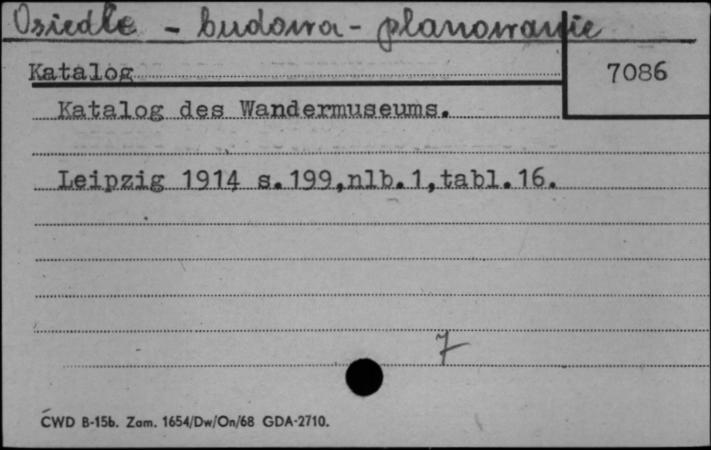 Osiedle - budowa - planowanie
Katalog
7086
Katalog des Wandermuseums.
Leipzig 1914 s.199,nlb.1,tabl.16.
7
ĆWD B-15b. Zam. 1654/Dw/On/68 GDA-2710.